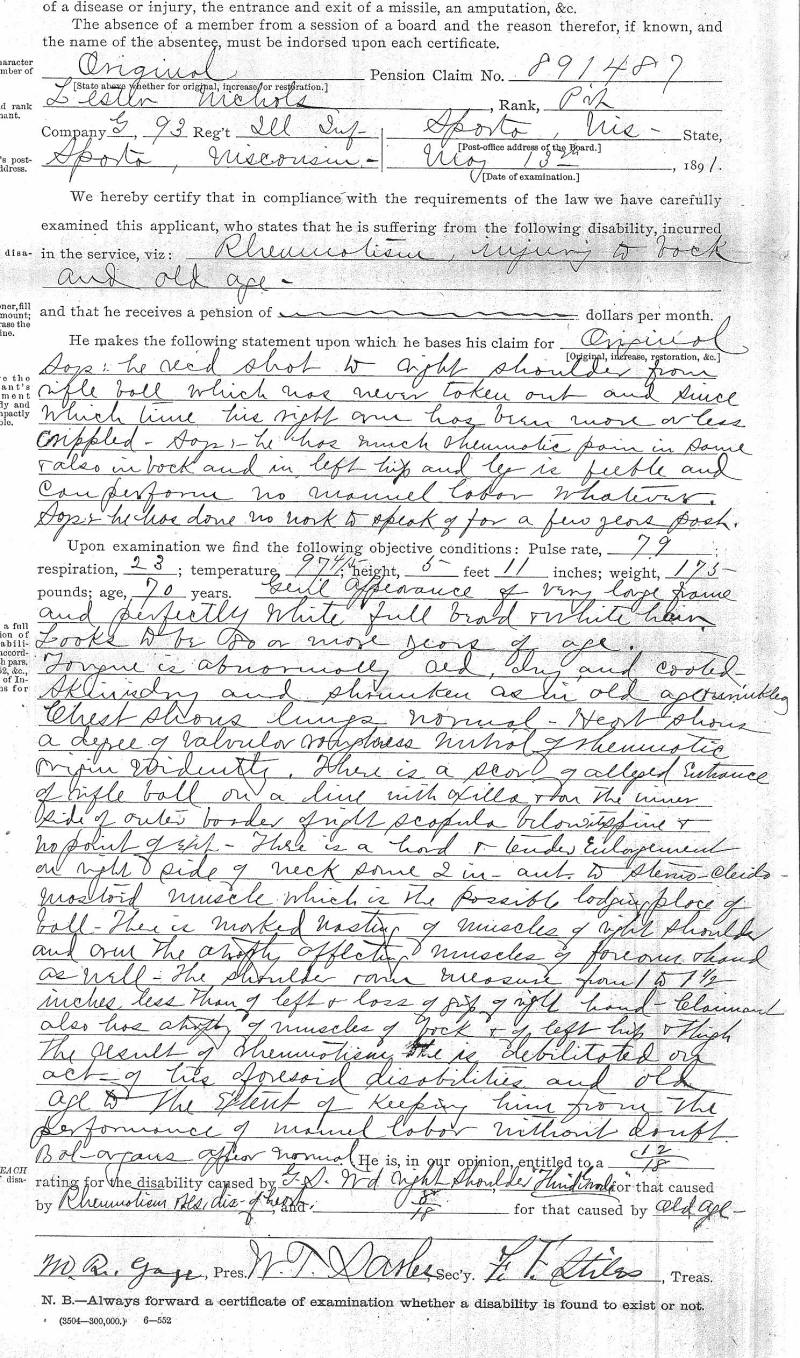 of a disease or injury, the entrance and exit of a missile, an amputation, &c.
The absence of a member from a session of a board and the reason therefor, if known, and
the name of the absentee, must be indorsed upon each certificate.
Original Pension Claim No. 891487
[State above whether for original, increase, or restoration.]
Lester Nichols, Rank, Pvt
Company G, 93 Reg't Ill Inf- Sparta, Wis- State,
[Post-office address of the Board.]
Sparta, Wisconsin- May 13th, 1891.
[Date of examination.]
We hereby certify that in compliance with the requirements of the law we have carefully
examined this applicant, who states that he is suffering from the following disability, incurred
in the service, viz: Rheumatism, injury to back
and old age-
and that he receives a pension of dollars per month.
He makes the following statement upon which he bases his claim for Original
[Original, increase, restoration, &c.]
Says: he rec'd shot to right shoulder from
rifle ball which was never taken out and since
which time his right arm has been more or less
crippled- Says:- he has much rheumatic pain in same
& also in back and in left hip and leg is feeble and
can perform no manuel labor whatever.
Says: he has done no work to speak of for a few years past.
Upon examination we find the following objective conditions: Pulse rate, 79;
respiration, 23; temperature, 97 4/5; height, 5 feet 11 inches; weight, 175
pounds; age, 70 years. Genl appearance of very large frame
and perfectly white full beard & white hair.
Looks to be 80 or more years of age.
Tongue is abnormally red, dry and coated
Skin is dry and shrunken as in old age & wrinkled
Chest shows lungs normal- Heart shows
a degree of valvular roughness mitral of rheumatic
origin evidently. There is a scar of alleged entrance
of rifle ball on a line with axilla & on the inner
side of outer border of right scapula below its spine &
no point of exit- There is a hard & tender enlargement
on right side of neck some 2 in- ant. to sterno-cleido-
mastoid muscle which is the possible lodging place of
ball- There is marked wasting of muscles of right shoulder
and arm the atrophy affecting muscles of forearm & hand
as well- The shoulder & arm measure from 1 to 1 1/2
inches less than of left & loss of grip of right hand- Claimant
also has atrophy of muscles of back & of left hip & thigh
the result of rheumatism. He is debilitated on
act- of his aforesaid disabilities and old
age to the extent of keeping him from the
performance of manuel labor without doubt
Bal- organs appear normal He is, in our opinion, entitled to a 12/18
rating for the disability caused by G.S. Wd right shoulder, for that caused
by Rheumatism & res. dis- of heart, and 8/18 for that caused by old age-
M. R. Gage, Pres. W. T. Sarles, Sec'y. F. F. Stiles, Treas.
N. B.—Always forward a certificate of examination whether a disability is found to exist or not.
(3504—300,000.) 6—552